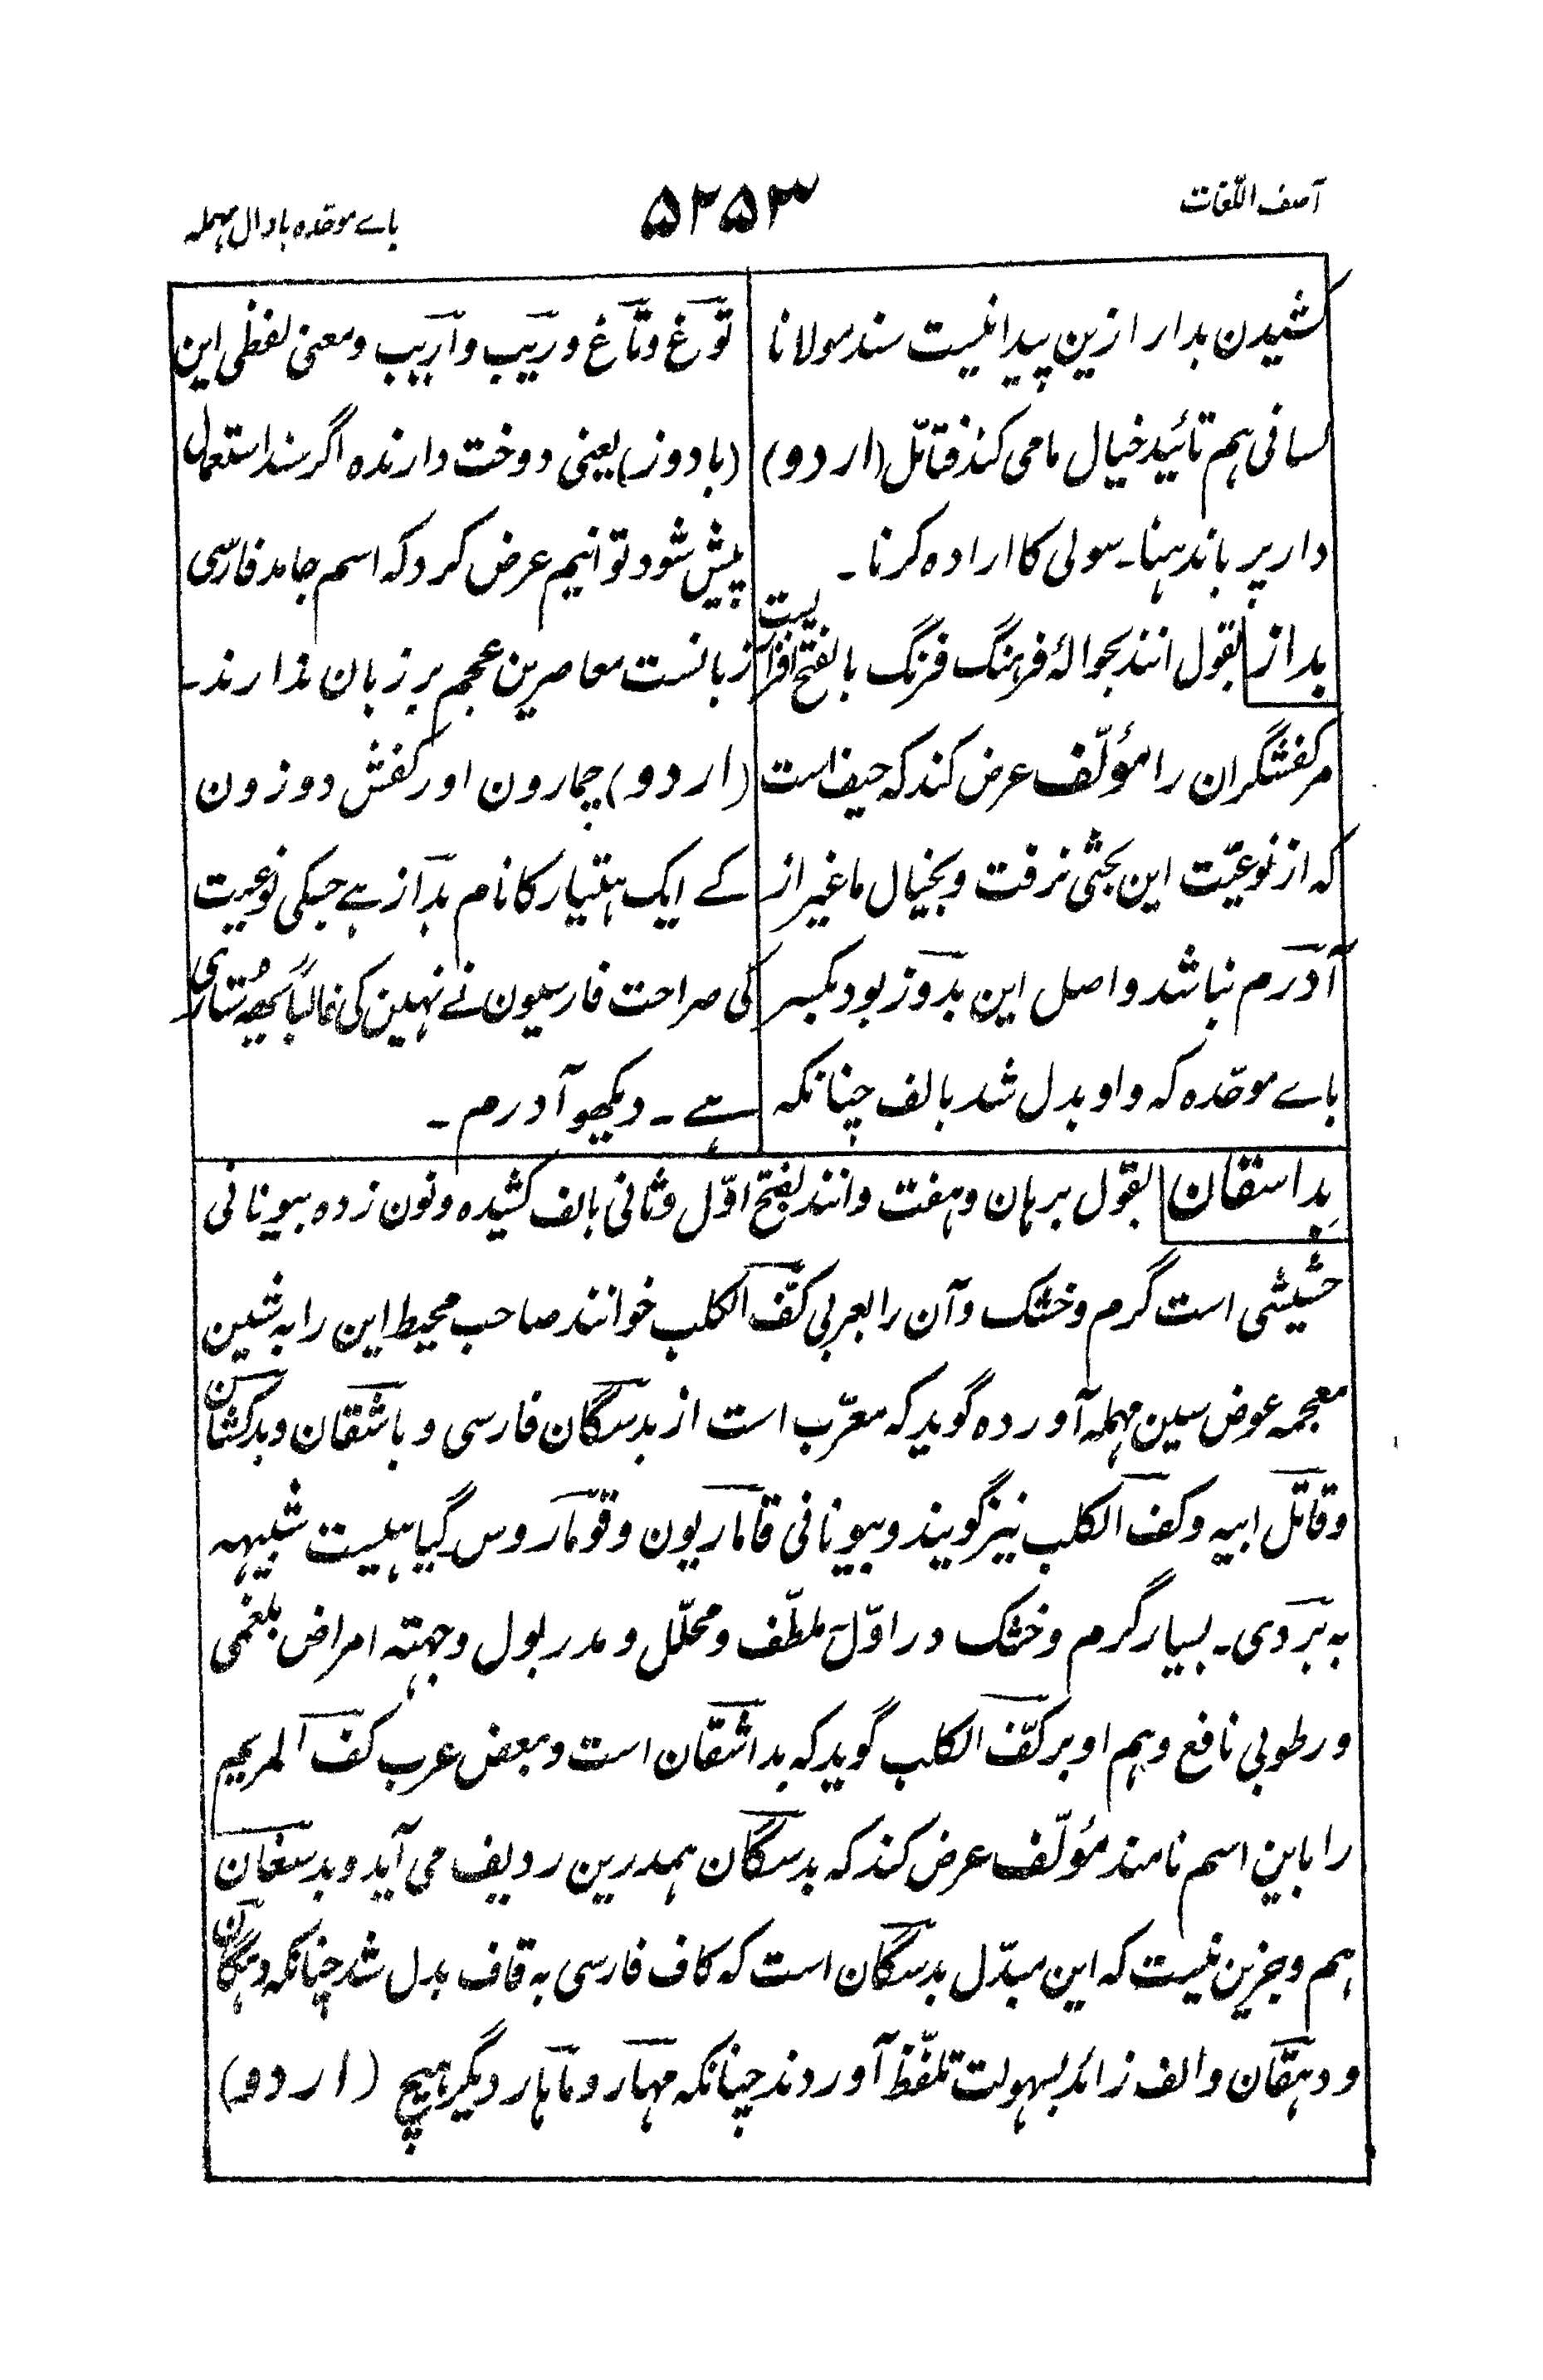 آصف اللّغات
۵۲۵۳
باے موحّدہ با دال مہملہ
کشیدن بدار ازین پیدا نیست سند مولانا
لسانی ہم تائید خیال ما می کند فتاتل (اردو)
دار پر باندہنا۔ سولی کا ارادہ کرنا۔
بداز بقول انند بحوالۂ فرہنگ فرنگ بالفتح افزاریست
مر کفشگران را مؤلّف عرض کند کہ حیف است
کہ از نوعیّت این بحثی نرفت و بخیال ما غیر از
آدرم نباشد و اصل این بدوز بود بکسر
باے موحّدہ کہ واو بدل شد بالف چنانکہ
توغ و تاغ و ریب و اریب و معنی لفظی این
(با دوز) یعنی دوخت دارندہ اگر سند استعمال
پیش شود توانیم عرض کرد کہ اسم جامد فارسی
زبانست معاصرین عجم بر زبان ندارند۔
(اردو) چمارون اور کفش دوزون
کے ایک ہتیار کا نام بداز ہے جسکی نوعیت
کی صراحت فارسیون نے نہین کی غالباً یہ ستاری
ہے۔ دیکھو آدرم۔
بداسقان بقول برہان و ہفت و انند بفتح اوّل و ثانی بالف کشیدہ و نون زدہ بیونانی
حشیشی است گرم و خشک و آن را بعربی کفّ الکلب خوانند صاحب محیط این را بہ شین
معجمہ عوض سین مہملہ آوردہ گوید کہ معرّب است از بدسگان فارسی و باشقان و بدکشان
و قاتل ابیہ و کف الکلب نیز گویند و بیونانی قاماریون و قوماروس گیاہیست شبیہہ
بہ بردی۔ بسیار گرم و خشک در اوّل ملطّف و محلّل و مدر بول و جہتہ امراض بلغمی
و رطوبی نافع و ہم او بر کفّ الکلب گوید کہ بداشقان است و بعض عرب کف المریم
را باین اسم نامند مؤلّف عرض کند کہ بدسگان ہمدرین ردیف می آید و بدسغان
ہم و جزین نیست کہ این مبدّل بدسگان است کہ کاف فارسی بہ قاف بدل شد چنانکہ دہگان
و دہقان و الف زائد بسہولت تلفّظ آوردند چنانکہ مہار و ماہار دیگر ہیچ (اردو)